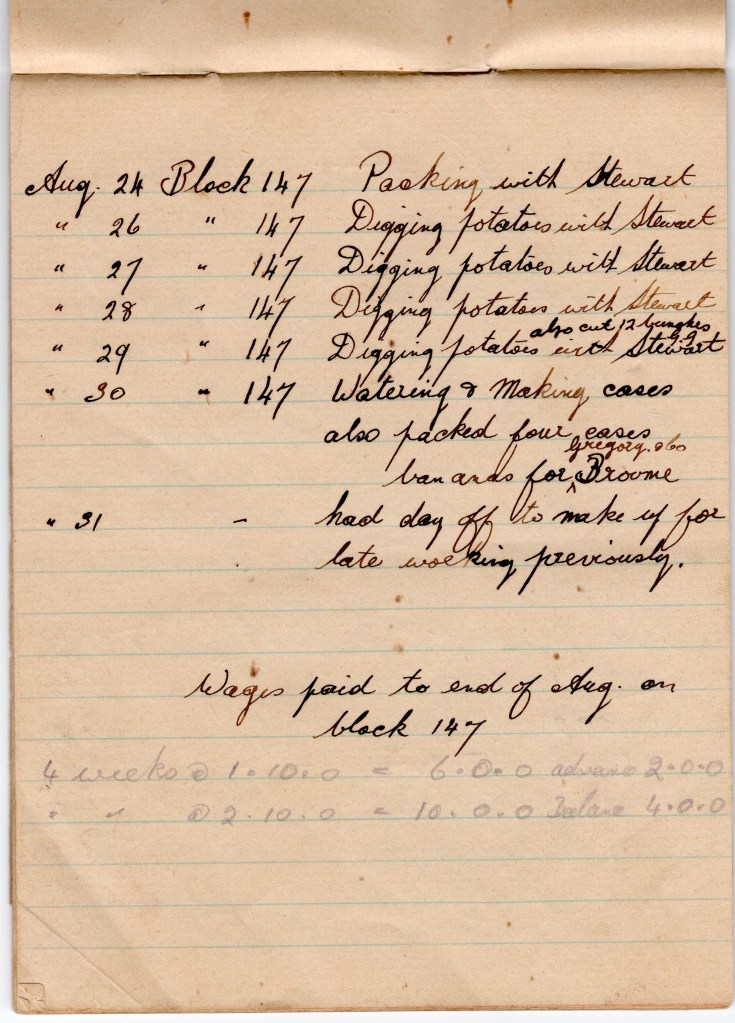 Aug. 24 Block 147 Packing with Stewart
" 26 " 147 Digging potatoes with Stewart
" 27 " 147 Digging potatoes with Stewart
" 28 " 147 Digging potatoes with Stewart
also cut 12 bunches
" 29 " 147 Digging potatoes with Stewart
" 30 " 147 Watering & Making cases
also packed four cases
Gregory. &
bananas for ^ Broome
" 31 - had day off to make up for
late working previously.
Wages paid to end of Aug. on
block 147
4 weeks @ 1.10.0 = 6.0.0 advance 2.0.0
" " @ 2.10.0 = 10.0.0 Balance 4.0.0